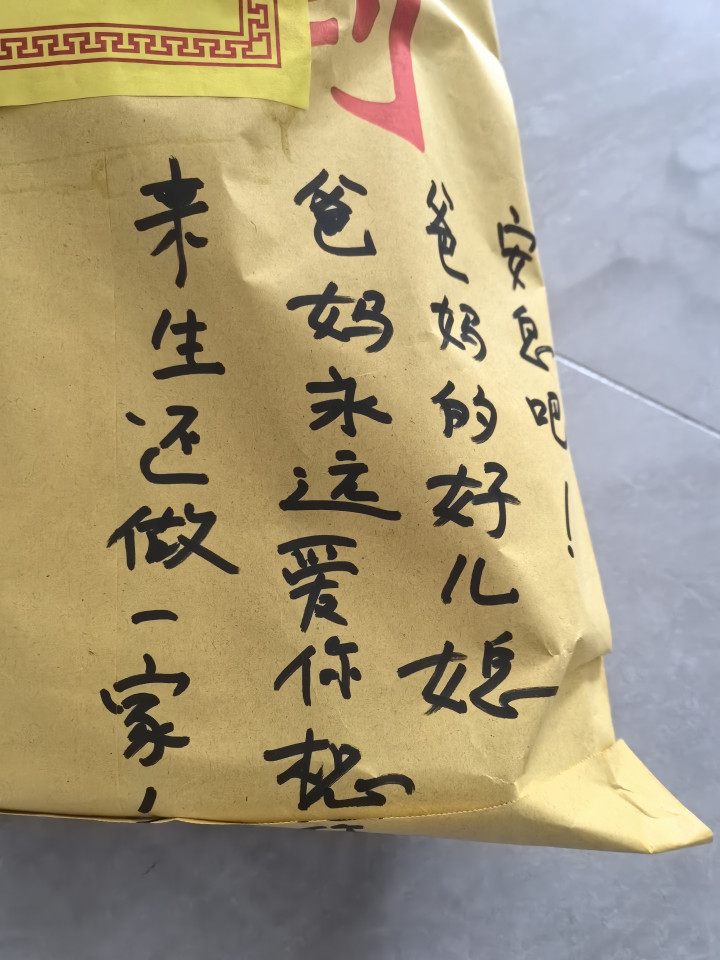 来生还做一家
爸妈永远爱你想
爸妈的好儿媳
安息吧！